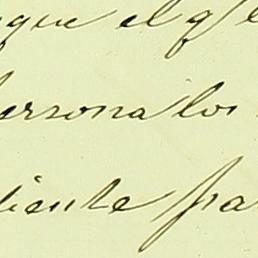 que el q
persona los
diente pa